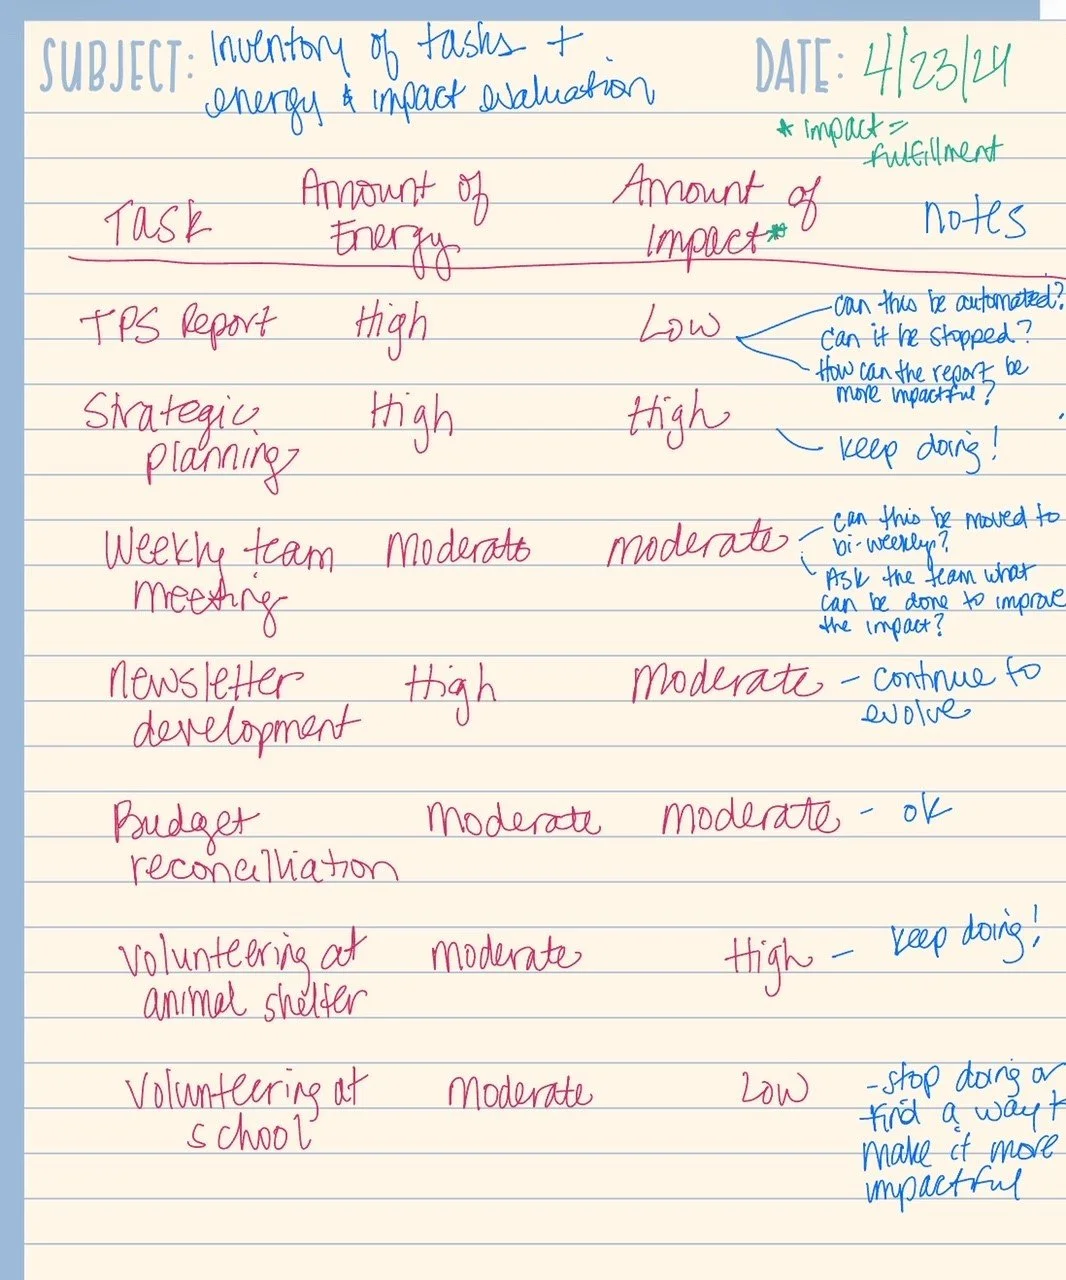 SUBJECT: Inventory of tasks +
energy & impact evaluation
DATE: 4/23/24
* impact =
fulfillment
Task Amount of Energy Amount of Impact* notes
TPS Report High Low
can this be automated?
Can it be stopped?
How can the report be
more impactful?
Strategic High High
planning
keep doing!
Weekly team Moderate moderate
meeting
can this be moved to
bi-weekly?
Ask the team what
can be done to improve
the impact?
Newsletter High Moderate - continue to
development evolve
Budget Moderate moderate - ok
reconcilliation
Volunteering at moderate High - keep doing!
animal shelter
Volunteering at moderate Low
school
- stop doing or
find a way t
make it more
impactful